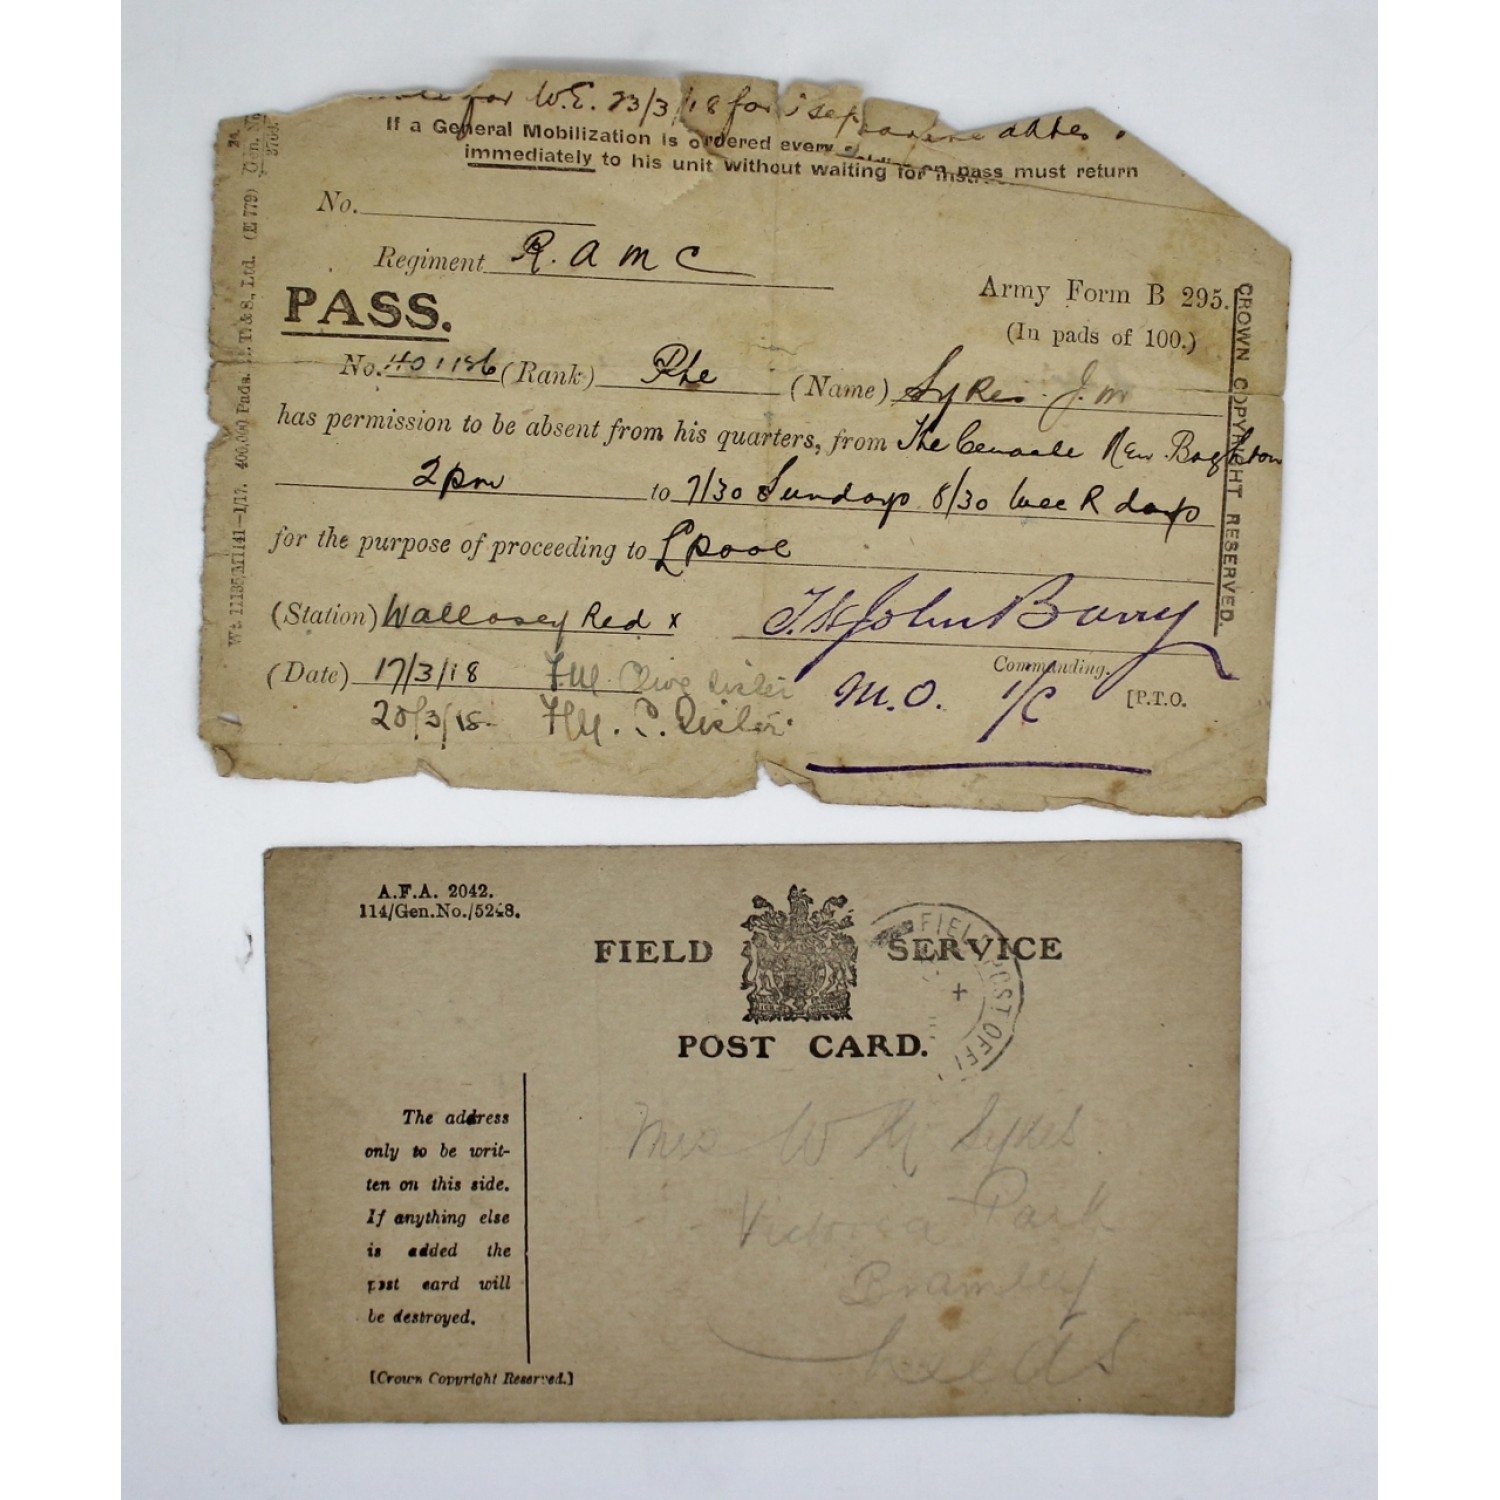 for W.E. 23/3/18 for
If a General Mobilization is ordered every on pass must return
immediately to his unit without waiting for
No.
Regiment R. A M C
PASS.
Army Form B 295.
(In pads of 100.)
No. 401186 (Rank) Pte (Name) Sykes J. M
has permission to be absent from his quarters, from The New Brighton
2 pm to 7/30 Sundays 8/30 Week days
for the purpose of proceeding to L'pool
(Station) Wallasey Red x
T. St John Barry
Commanding.
(Date) 17/3/18
M.O. i/c
[P.T.O.
20/3/18
CROWN COPYRIGHT RESERVED.
400,000 Pads. & S., Ltd. (E 779)
A.F.A. 2042.
114/Gen.No./5248.
FIELD SERVICE
POST CARD.
FIELD POST OFFI
The address
only to be writ-
ten on this side.
If anything else
is added the
post card will
be destroyed.
[Crown Copyright Reserved.]
Mrs W M Sykes
Victoria Park
Bramley
Leeds